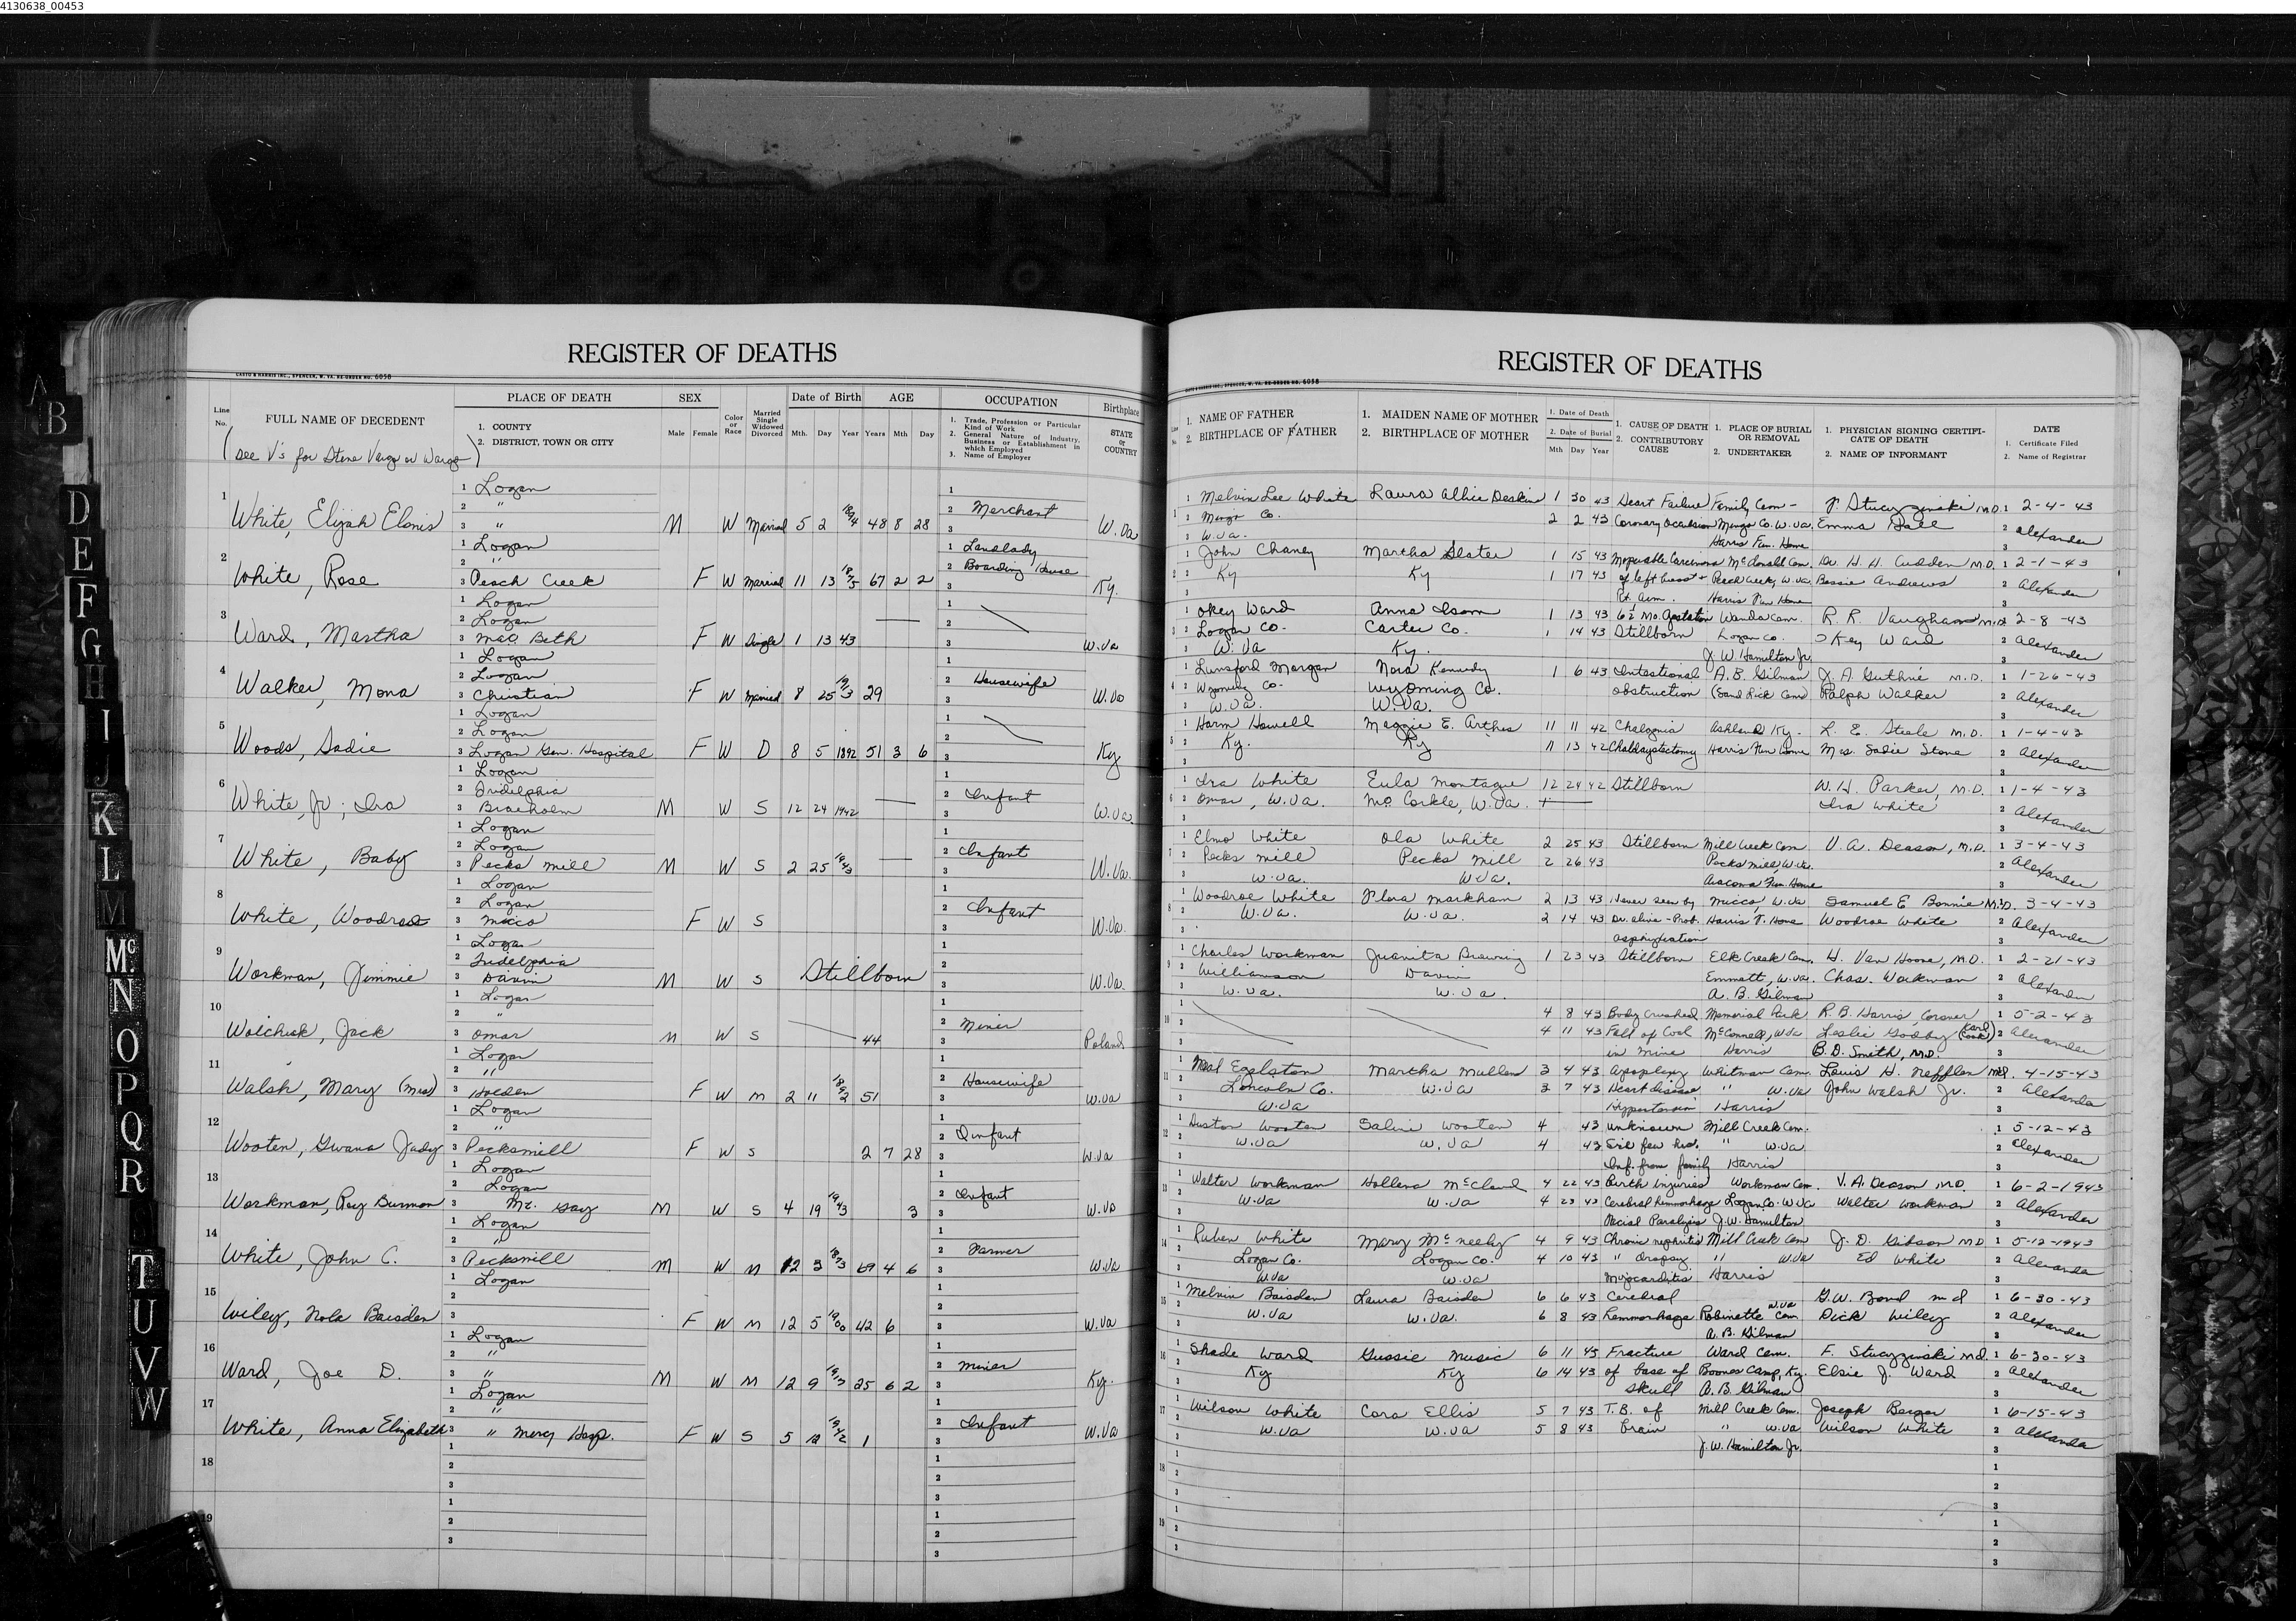 4130638_00453
REGISTER OF DEATHS
CASTO & HARRIS INC., SPENCER, W. VA. RE-ORDER NO. 6058
Line No.
FULL NAME OF DECEDENT
(See V's for Steve Varga or Warga)
PLACE OF DEATH
1. COUNTY
2. DISTRICT, TOWN OR CITY
SEX
Male Female
Color or Race
Married Single Widowed Divorced
Date of Birth
Mth. Day Year
AGE
Years Mth Day
OCCUPATION
1. Trade, Profession or Particular Kind of Work
2. General Nature of Industry, Business or Establishment in which Employed
3. Name of Employer
Birthplace
STATE or COUNTRY
1 White, Elijah 1 Logan 2 " 3 " M W Married 5 2 1894 48 8 28 Merchant W. Va
2 White, Rose 1 Logan 2 " 3 Peach Creek F W Married 11 13 1875 67 2 2 1 Landlady 2 Boarding House Ky.
3 Ward, Martha 1 Logan 2 Logan 3 Mac Beth F W Single 1 13 43 W. Va
4 Walker, Mona 1 Logan 2 Logan 3 Christian F W Married 8 25 1913 29 Housewife W. Va
5 Woods, Sadie 1 Logan 2 Logan 3 Logan Gen. Hospital F W D 8 5 1892 51 3 6 Ky
6 White, Jr; Ira 1 Logan 2 Tridelphia 3 Braeholm M W S 12 24 1942 Infant W. Va.
7 White, Baby 1 Logan 2 Logan 3 Pecks Mill M W S 2 25 1943 Infant W. Va.
8 White, 1 Logan 2 Logan 3 Micco F W S Infant W. Va.
9 Workman, Jimmie 1 Logan 2 Tridelphia 3 Davin M W S Stillborn W. Va.
10 Wolchick, Jack 1 Logan 2 " 3 Omar M W S 44 Miner Poland
11 Walsh, Mary (Mrs) 1 Logan 2 " 3 Holden F W M 2 11 1892 51 Housewife W. Va
12 Wooten, Gwana Judy 1 Logan 2 " 3 Pecksmill F W S 2 7 28 Infant W. Va
13 Workman, Roy Burman 1 Logan 2 Logan 3 Mt. Gay M W S 4 19 1943 3 Infant W. Va
14 White, John C. 1 Logan 2 " 3 Pecksmill M W M 12 3 1873 69 4 6 Farmer W. Va
15 Wiley, Nola Baisden 1 Logan F W M 12 5 1900 42 6 W. Va
16 Ward, Joe D. 1 Logan 2 " 3 " M W M 12 9 1917 25 6 2 Miner Ky.
17 White, Anna Elizabeth 1 Logan 2 " 3 " Mercy Hosp. F W S 5 1942 1 Infant W. Va
18
19
REGISTER OF DEATHS
CASTO & HARRIS INC., SPENCER, W. VA. RE-ORDER NO. 6058
1. NAME OF FATHER
2. BIRTHPLACE OF FATHER
1. MAIDEN NAME OF MOTHER
2. BIRTHPLACE OF MOTHER
1. Date of Death
2. Date of Burial
Mth Day Year
1. CAUSE OF DEATH
2. CONTRIBUTORY CAUSE
1. PLACE OF BURIAL OR REMOVAL
2. UNDERTAKER
1. PHYSICIAN SIGNING CERTIFICATE OF DEATH
2. NAME OF INFORMANT
DATE
1. Certificate Filed
2. Name of Registrar
1 Melvin Lee White Laura Allie Deskins 1 30 43 Heart Failure Family Cem - F. Stuczzinski M.D. 2-4-43
Mingo Co. 2 2 43 Coronary Occulsion Mingo Co. W. Va. Emma Hall Alexander
W. Va. Harris Fun. Home
2 John Chaney Martha Slater 1 15 43 Inoperable Carcinoma McDonald Cem. Dr. H. H. Cudden M.D. 2-1-43
Ky Ky 1 17 43 of left breast + Peach Creek, W. Va. Bessie Andrews Alexander
Rt. arm. Harris Fun. Home
3 Okey Ward Anna Isom 1 13 43 6½ Mo. Gestation Wanda Cem. R. R. Vaughan M.D. 2-8-43
Logan Co. Carter Co. 1 14 43 Stillborn Logan Co. Okey Ward Alexander
W. Va Ky. J. W. Hamilton Jr.
4 Lunsford Morgan Nora Kennedy 1 6 43 Intestional A. B. Gilman J. A. Guthrie M.D. 1-26-43
Wyoming Co. Wyoming Co. obstruction (Sand Lick Cem) Ralph Walker Alexander
W. Va. W. Va.
5 Harm Howell Maggie E. Arthur 11 11 42 Ashland Ky. L. E. Steele M.D. 1-4-43
Ky. Ky 11 13 42 Harris Fun Home Mrs. Sadie Stone Alexander
6 Ira White Eula Montague 12 24 42 Stillborn W. H. Parker, M.D. 1-4-43
Omar, W. Va. McCorkle, W. Va. Ira White Alexander
7 Elmo White Ola White 2 25 43 Stillborn Mill Creek Cem V. A. Deason, M.D. 3-4-43
Pecks Mill Pecks Mill 2 26 43 Pecks Mill, W. Va. Alexander
W. Va. W. Va. Aracoma Fun. Home
8 Woodroe White Flora Markham 2 13 43 Never seen by Micco, W. Va Samuel E. Bonnie M.D. 3-4-43
W. Va. W. Va. 2 14 43 Dr. alive - Prob. Harris F. Home Woodroe White Alexander
asphyxiation
9 Charles Workman Juanita Browning 1 23 43 Stillborn Elk Creek Cem. H. Van Hoose, M.D. 2-21-43
Williamson Davin Emmett, W. Va. Chas. Workman Alexander
W. Va. W. Va. A. B. Gilman
10 4 8 43 Body Crushed Memorial Park R. B. Harris, Coroner 5-2-43
4 11 43 Fall of Coal McConnell, W. Va Leslie Godby Alexander
in mine Harris B. D. Smith, M.D.
11 Egelston Martha Mullen 3 4 43 Apoplexy Whitman Cem. Louis H. Nefflen M.D. 4-15-43
Lincoln Co. W. Va 3 7 43 Heart disease " W. Va John Walsh Jr. Alexander
W. Va Hypertension Harris
12 Huston Wooten Saline Wooten 4 43 unknown Mill Creek Cem. 5-12-43
W. Va W. Va 4 43 Sick few hrs. " W. Va Alexander
Inf. from family Harris
13 Walter Workman Hollena McCloud 4 22 43 Birth Injuries Workman Cem. V. A. Deason M.D. 6-2-1943
W. Va W. Va 4 23 43 Cerebral hemorrhage Logan Co. W. Va Walter Workman Alexander
Facial Paralysis J. W. Hamilton
14 Ruben White Mary McNeely 4 9 43 Chronic nephritis Mill Creek Cem J. D. Gibson M.D 5-12-1943
Logan Co. Logan Co. 4 10 43 " dropsy " W. Va Ed White Alexander
W. Va W. Va Myocarditis Harris
15 Melvin Baisden Laura Baisden 6 6 43 Cerebral G. W. Bond m d 6-30-43
W. Va W. Va. 6 8 43 hemmorhage Robinette Cem W. Va Dick Wiley Alexander
A. B. Gilman
16 Shade Ward Gussie Music 6 11 43 Fracture Ward Cem. F. Stuczzinski m.d. 6-30-43
Ky Ky 6 14 43 of base of Boones Camp, Ky. Elsie J. Ward Alexander
skull A. B. Gilman
17 Wilson White Cora Ellis 5 7 43 T.B. of Mill Creek Cem. Joseph Berger 6-15-43
W. Va W. Va 5 8 43 brain " W. Va Wilson White Alexander
J. W. Hamilton Jr.
18
19
A
B
D
E
F
G
H
I
J
K
L
M
Mc
N
O
P
Q
R
T
U
V
W
X